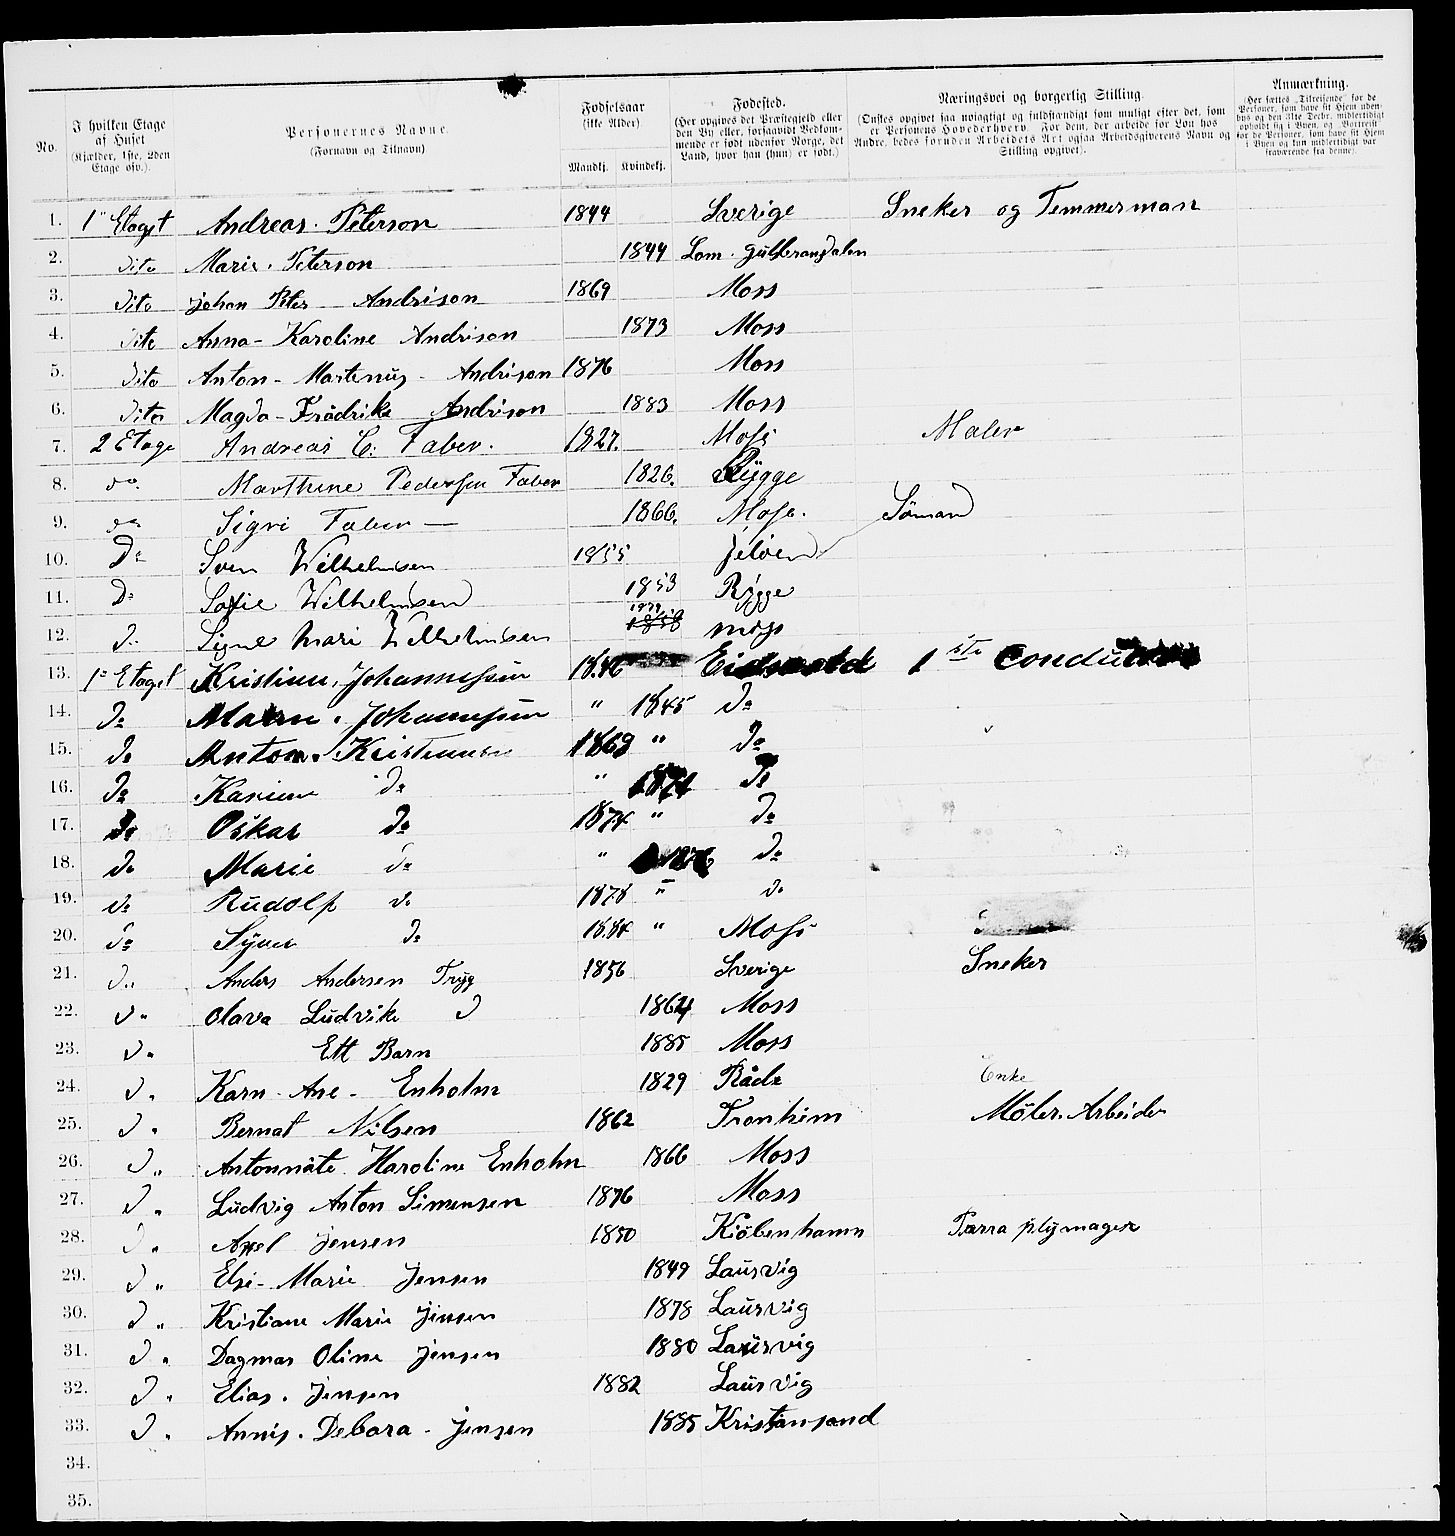 No. I hvilken Etage af Huset (Kjælder, 1ste, 2den Etage osv.). Personernes Navne. (Fornavn og Tilnavn) Fødselsaar (ikke Alder). Mandkj. Kvindekj. Fødested. (Her opgives det Præstegjeld eller den By eller, forsaavidt Vedkommende er født udenfor Norge, det Land, hvor han (hun) er født.) Næringsvei og borgerlig Stilling. (Ønskes opgivet saa nøiagtigt og fuldstændigt som muligt efter det, som er Personens Hovederhverv. For dem, der arbeide for Løn hos Andre, bedes foruden Arbeidets Art ogsaa Arbeidsgiverens Navn og Stilling opgivet). Anmærkning. (Her sættes „Tilreisende" for de Personer, som have sit Hjem udenbys og den 31te Decbr. midlertidigt opholdt sig i Byen, og „Bortreist" for de Personer, som have sit Hjem i Byen og kun midlertidigt var fraværende fra denne).
1. 1" Etaget Andreas. Peterson 1844 Sverige Sneker og Temmerman
2. Dito Marie. Peterson 1844 Lom. Gulbrandalen
3. Dito Johan Peter Andrison 1869 Moss
4. Dito Anna - Karoline Andrison 1873 Moss
5. Dito Anton - Martenus - Andrison 1876 Moss
6. Dito Magda - Frädrike Andrison 1883 Moss
7. 2 Etage Andreas C. Faber. 1827. Moss Maler
8. do. Marthine Pedersen Faber 1826. Rygge
9. do Sigri Faber — 1866. Moss. Sömand
10. Do Sven Wilhelmsen 1855 Jelöen
11. Do Sofie Wilhelmsen 1853 Rygge
12. D. Signe Mari Wilhelmsen 1879 moss
13. 1e Etaget Kristian, Johannessen 1846 Eidsvold 1ste Conduktør
14. Do Maren. Johannessen " 1845 Do
15. Do Anton. Kristiansen 1869 " Do
16. Do Karine Do " 1871 Do
17. Do Oskar Do 1874 " Do
18. Do Marie Do " 1876 Do
19. Do Rudolf Do 1878 " Do
20. Do Syver Do 1884 " Moss
21. D.. Anders Andersen Tryg 1856 Sverige Sneker
22. D " Olava Ludvike D 1864 Moss
23. D " Ett Barn 1885 Moss
24. D " Karn - Ane - Enholm 1829 Råde Enke
25. D " Bernat Nilsen 1862 Tronhim Möler. Arbeider
26. D " Antonnäte Haroline Enholm 1866 Moss
27. D " Ludvig Anton Simensen 1876 Moss
28. D " Axel Jensen 1850 Kiöbenhamn Parra plymager
29. D " Else - Marie Jensen 1849 Laurvig
30. D " Kristiane Marie Jensen 1878 Laurvig
31. D " Dagmar Oline Jensen 1880 Laurvig
32. D " Elias. Jensen 1882 Laurvig
33. D " Annis. Debora - Jensen 1885 Kristansand
34.
35.